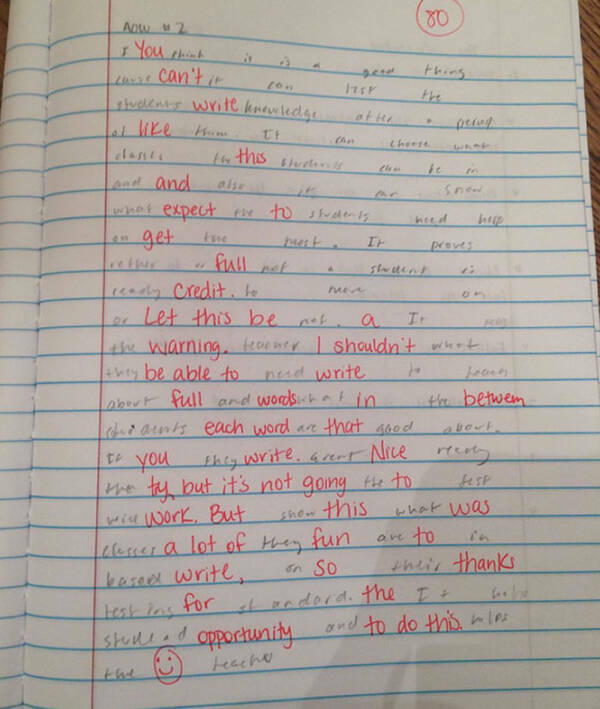 80
AOW #2
I You think it is a good thing
cause can't it can test the
students write knowledge after a period
of like them. It can choose what
classes the this students can be in
and and also it can show
what expect the to students need help
on get the most. It proves
rether or full not a student is
ready credit. to move on
or Let this be not. a It
the warning. teacher I shouldn't what
they be able to need write to teach
about full and words what in the betwem
students each word are that good about.
If you they write. arent Nice ready
the ty, but it's not going the to test
will work. But show this what was
classes a lot of they fun are to in
based write, on so their thanks
testing for standard. the It helps
studend opportunity and to do this. helps
the teacher